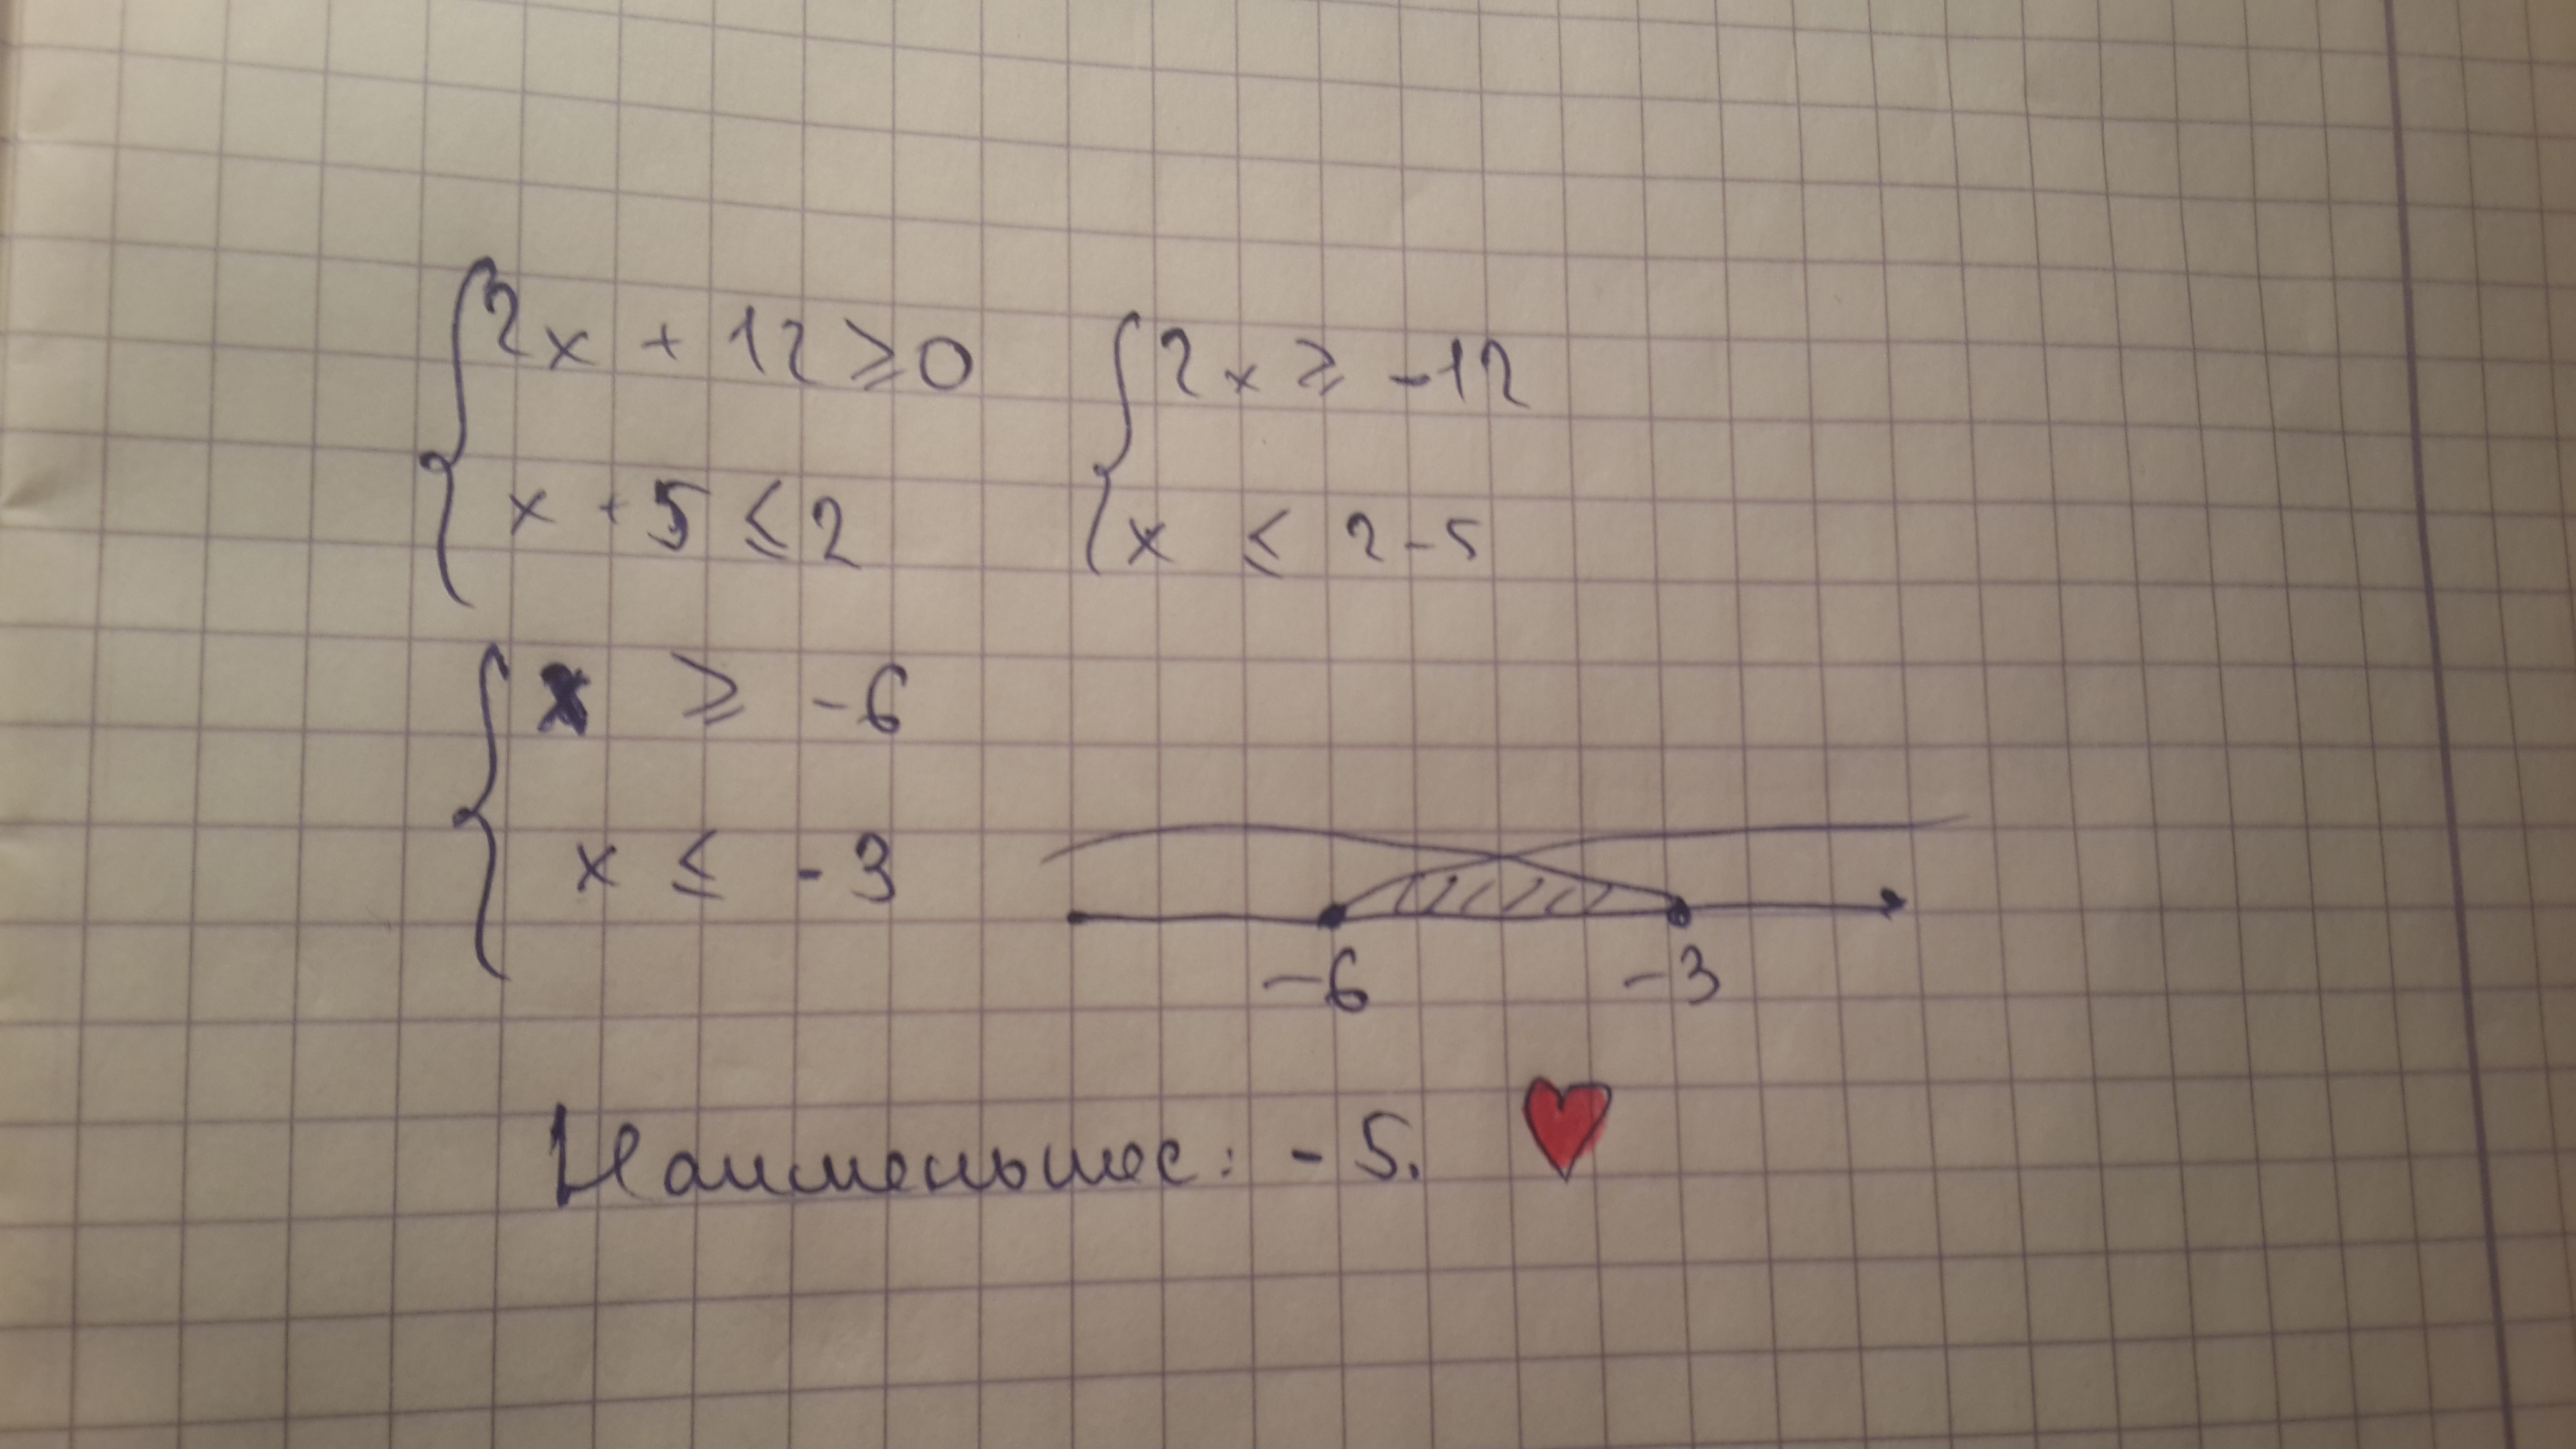 2x + 12 ≥ 0
x + 5 ≤ 2
2x ≥ -12
x ≤ 2 - 5
x ≥ -6
x ≤ -3
-6 -3
Наименьшее: -5.